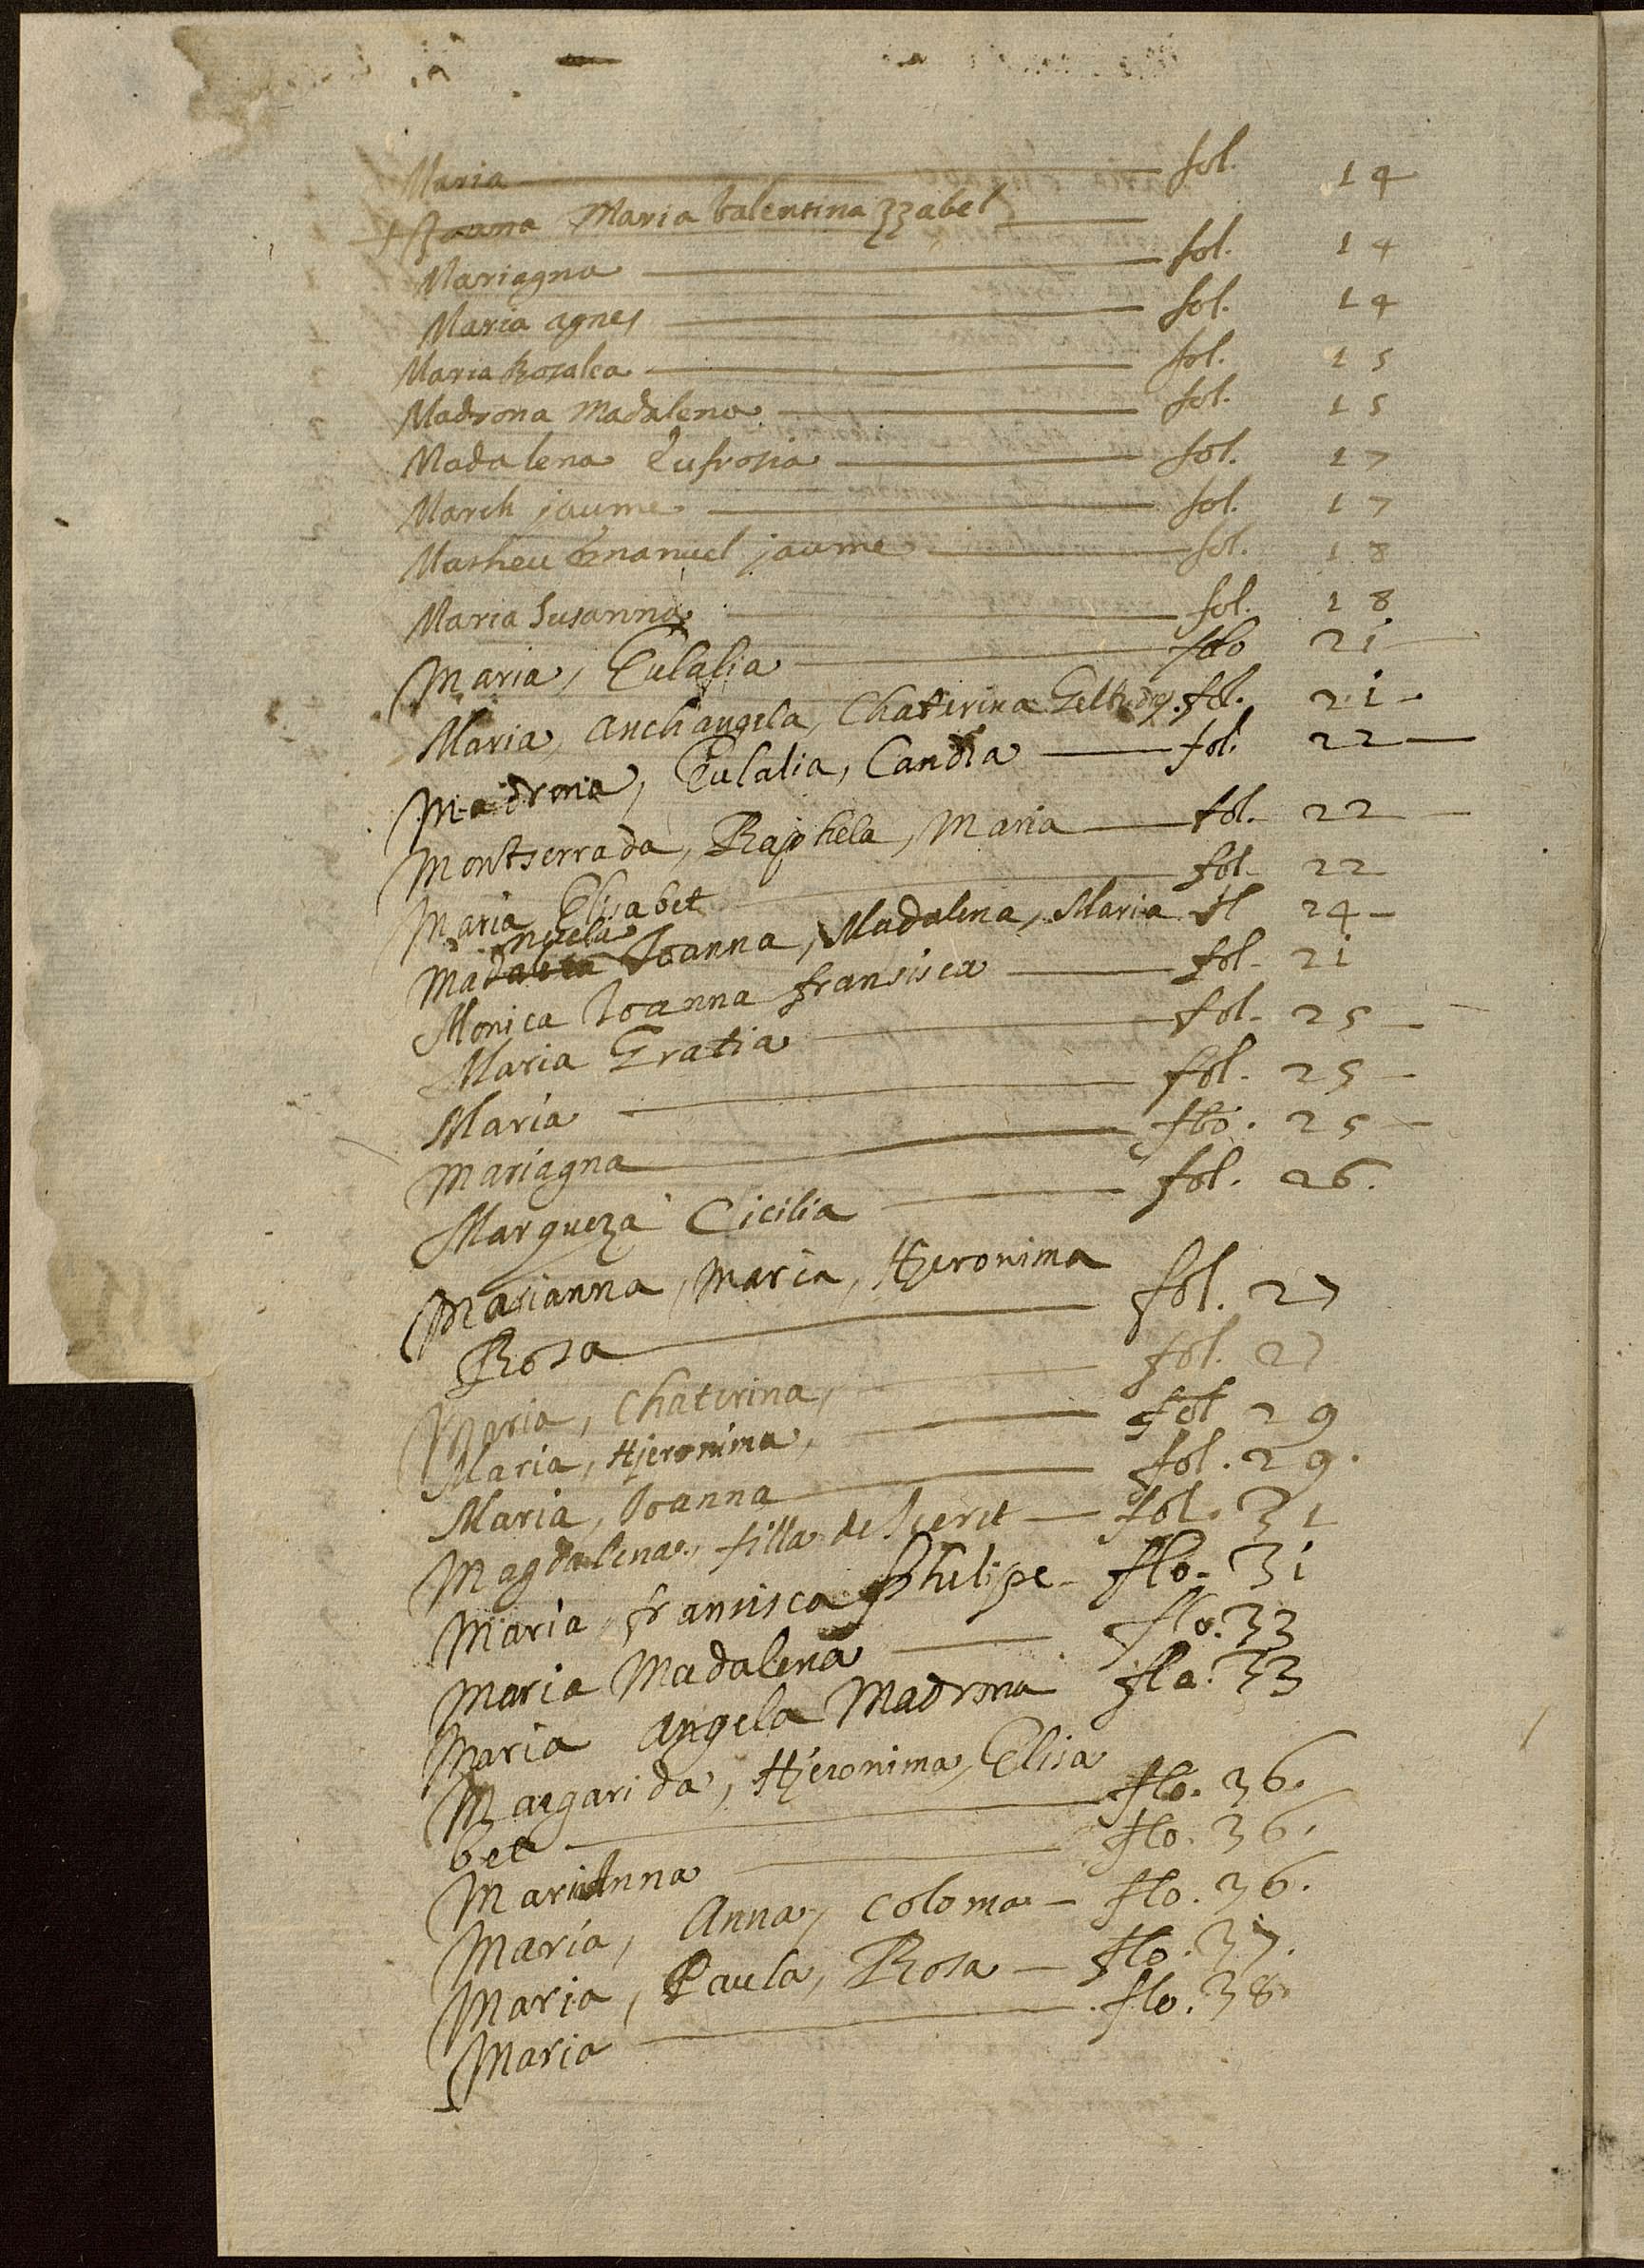 Maria fol. 14
+ Joanna Maria balentina Izabel
Mariagna fol. 14
Maria agnes fol. 14
Maria Rozalea fol. 15
Madrona Madalena fol. 15
Madalena Eufrosia fol. 17
March jaume fol. 17
Matheu Emanuel jaume fol. 18
Maria Susanna fol. 18
Maria, Eulalia flo 21
Maria, Archangela, Chaterina Geltrudis. fol. 21
Madrona, Eulalia, Candia fol. 22
Montserrada, Raphela, Maria fol. 22
Maria Elisabet fol. 22
Angela
Madalena Joanna, Madalena, Maria fl 24
Monica Joanna fransisca fol. 21
Maria Gratia fol. 25
Maria fol. 25
Mariagna flo. 25
Margueza Cicilia fol. 26.
Marianna, Maria, Hieronima
Rosa fol. 27
Maria, Chaterina, fol. 27
Maria, Hieronima, fol 29
Maria, Joanna fol. 29.
Magdalena, filla de fol. 31
Maria, fransisca Phelipe flo. 31
Maria Madalena flo. 33
Maria Angela Madrona flo. 33
Margarida, Hieronima, Elisa
bet flo. 36.
MariAnna flo. 36.
Maria, Anna, Coloma flo. 36.
Maria, Paula, Rosa flo. 37.
Maria flo. 38.